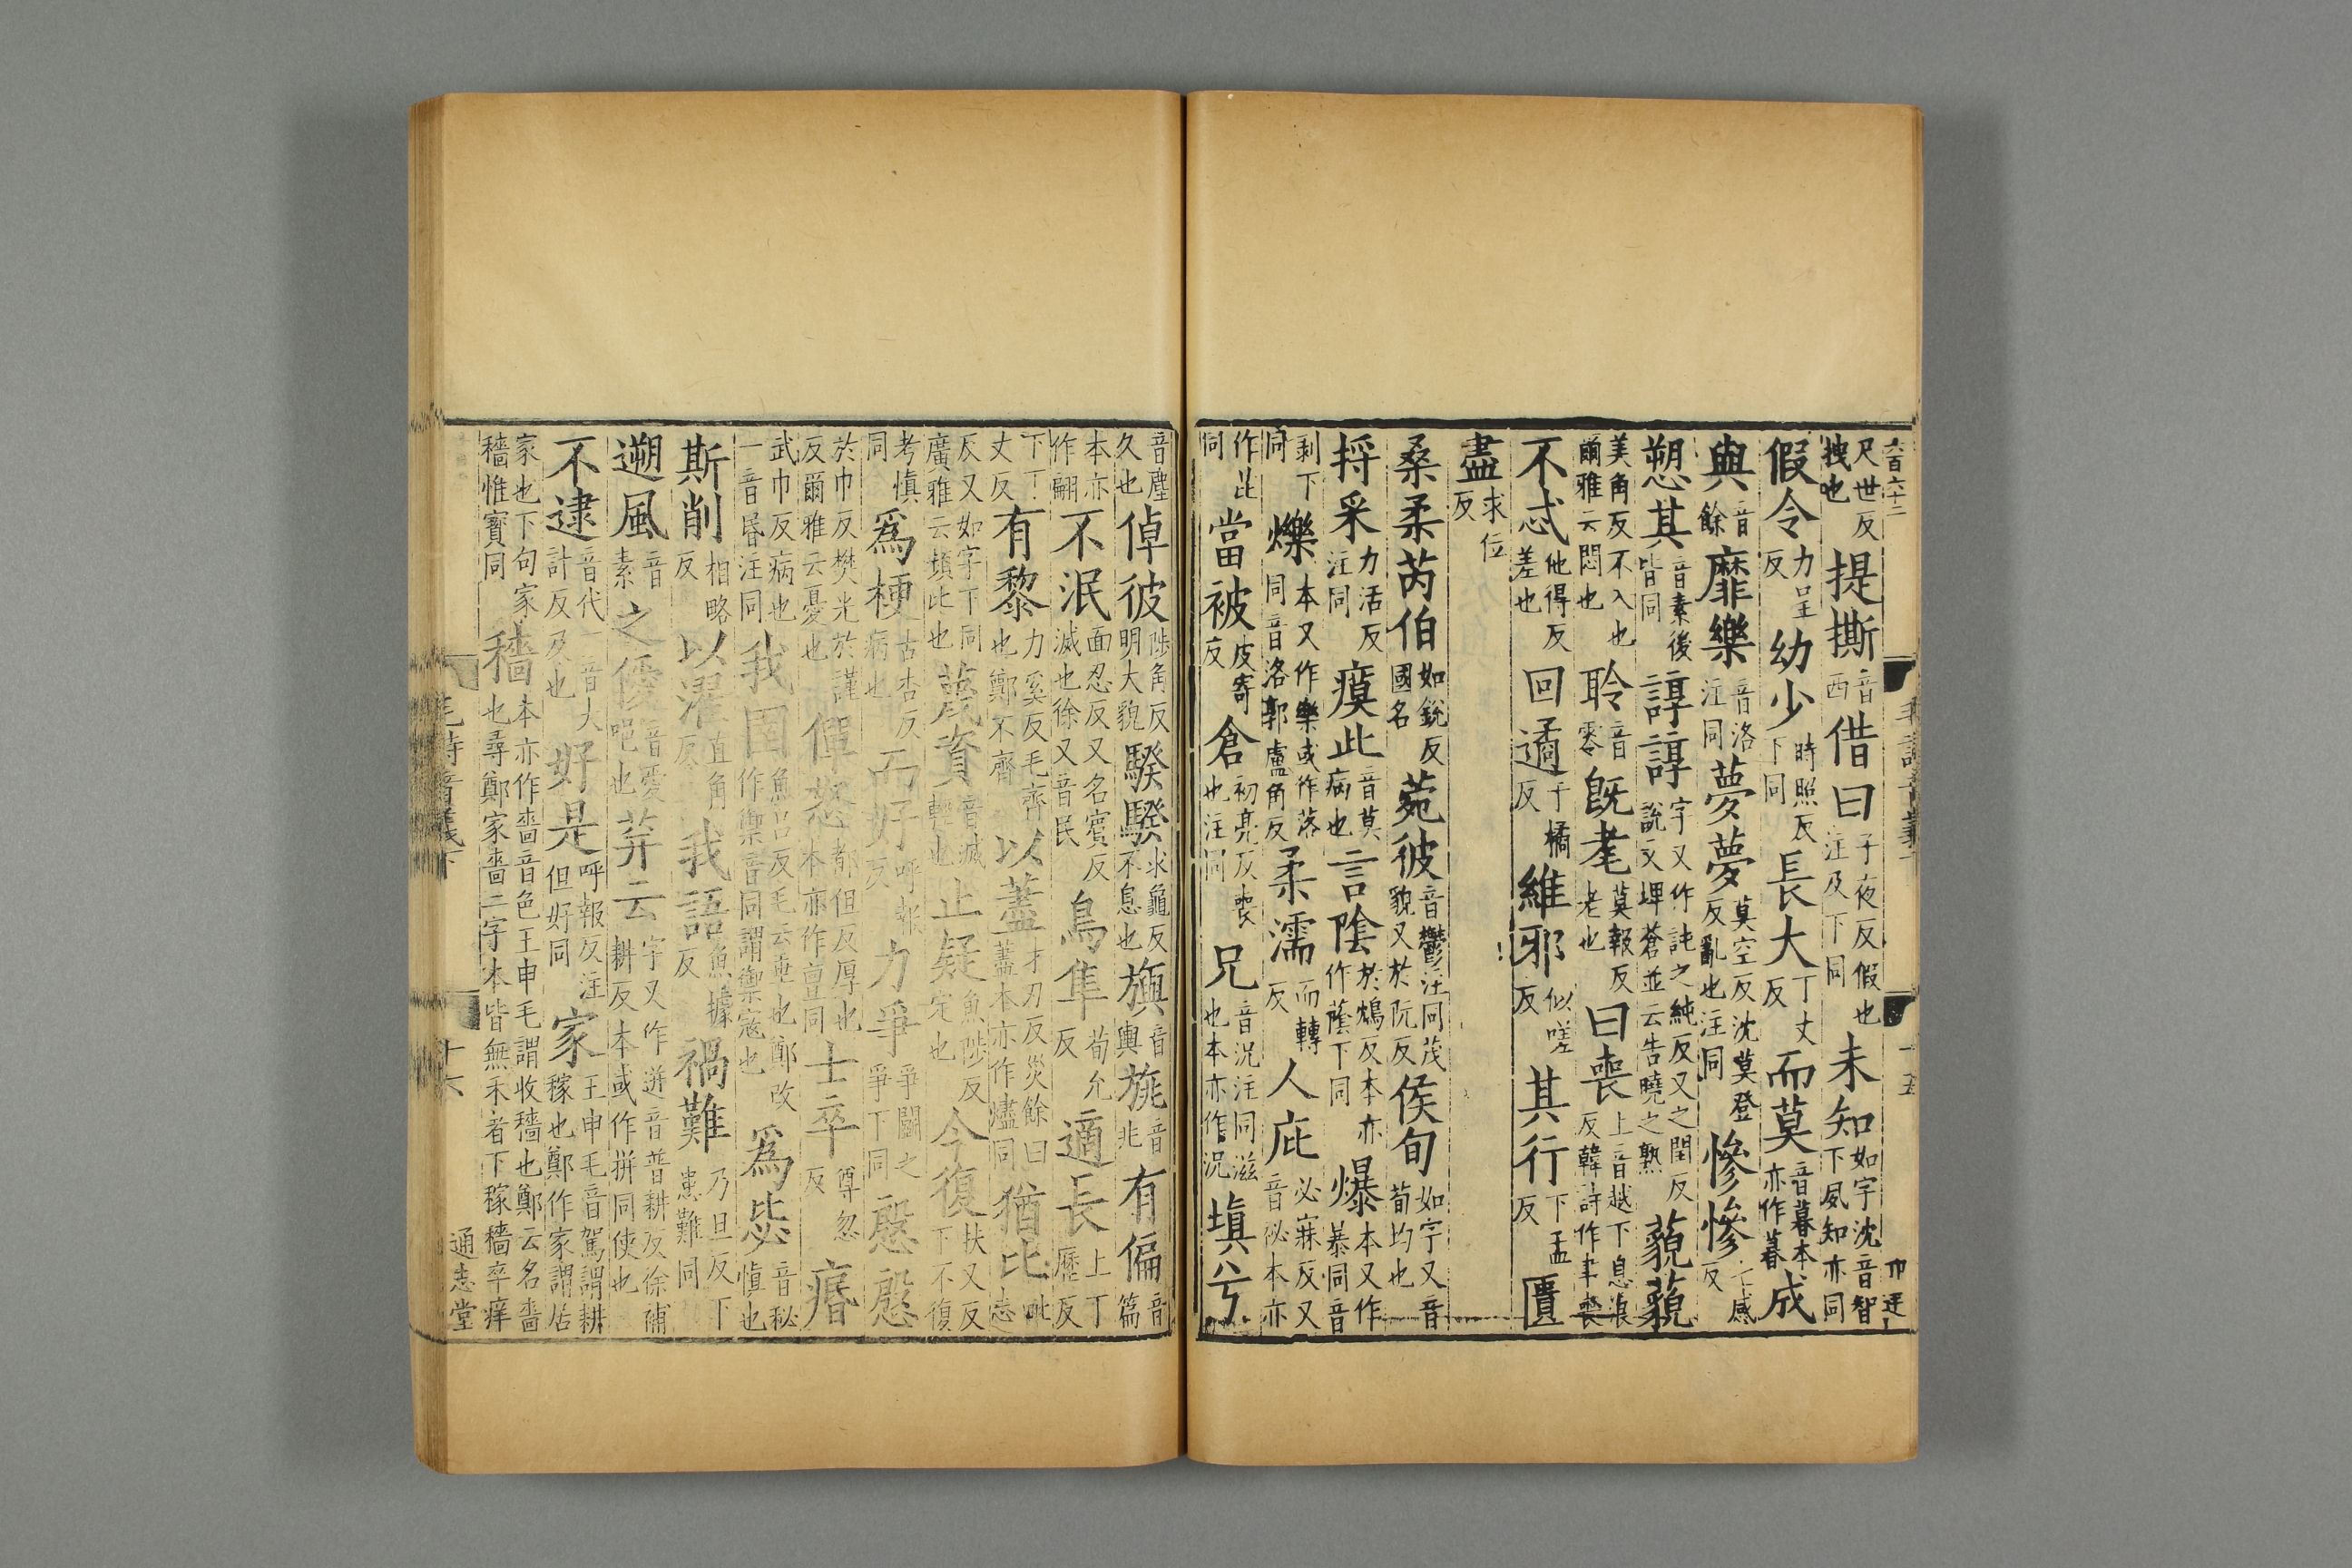 尺世反拽也提撕音西借曰子夜反假也注及下同未知如字沈音智下夙知亦同
假令力呈反幼少時照反下同長大丁丈反而莫音暮本亦作暮成
與音餘靡樂音洛注同夢夢莫空反沈莫登反亂也注同慘慘七感反
愬其音素後皆同諄諄字又作訰之純反又之閏反說文埤蒼並云告曉之熟藐藐
美角反不入也爾雅云悶也聆音零既耄莫報反老也曰喪上音越下息浪反韓詩作聿喪
不忒他得反差也回遹于橘反維邪似嗟反其行下孟反匱
盡求位反
桑柔芮伯如銳反國名菀彼音鬱注同茂貌又於阮反侯旬如字又音荀均也
捋采力活反注同瘼此音莫病也言陰於鴆反本亦作蔭下同爆本又作暴同音
剥下同爍本又作樂或作落同音洛郭盧角反柔濡而轉反人庇必寐反又音祕本亦
作芘同當被皮寄反倉初亮反喪也注同兄音況注同滋也本亦作況填兮
音塵久也倬彼陟角反明大貌騤騤求龜反不息也旟音輿旐音兆有偏音篇
本亦作翩不泯面忍反又名賓反滅也徐又音民鳥隼荀允反適長上丁歷反
下丁丈反有黎力奚反毛齊也鄭不齊以藎才刃反災餘曰藎本亦作燼同猶比毗志
反又如字下同廣雅云頻比也蔑資音滅輕也止疑魚陟反定也今復扶又反下不復
考慎同為梗古杏反病也而好呼報反力爭爭鬬之爭下同慇慇
於巾反樊光於謹反爾雅云憂也僤怒都但反厚也本亦作亶同士卒尊忽反痻
武巾反病也一音昬注同我圉魚呂反毛云垂也鄭改作禦音同謂禦寇也為毖音秘慎也
斯削相略反以濯直角反我語魚據反禍難乃旦反下患難同
遡風音素之僾音愛唈也荓云字又作迸音普耕反徐補耕反本或作拼同使也
不逮音代一音大計反及也好是呼報反注但好同家王申毛音駕謂耕稼也鄭作家謂居
家也下句家穡惟寶同穡本亦作嗇音色王申毛謂收穡也鄭云名嗇也尋鄭家嗇二字本皆無禾者下稼穡卒痒
毛詩音義下
十六
通志堂